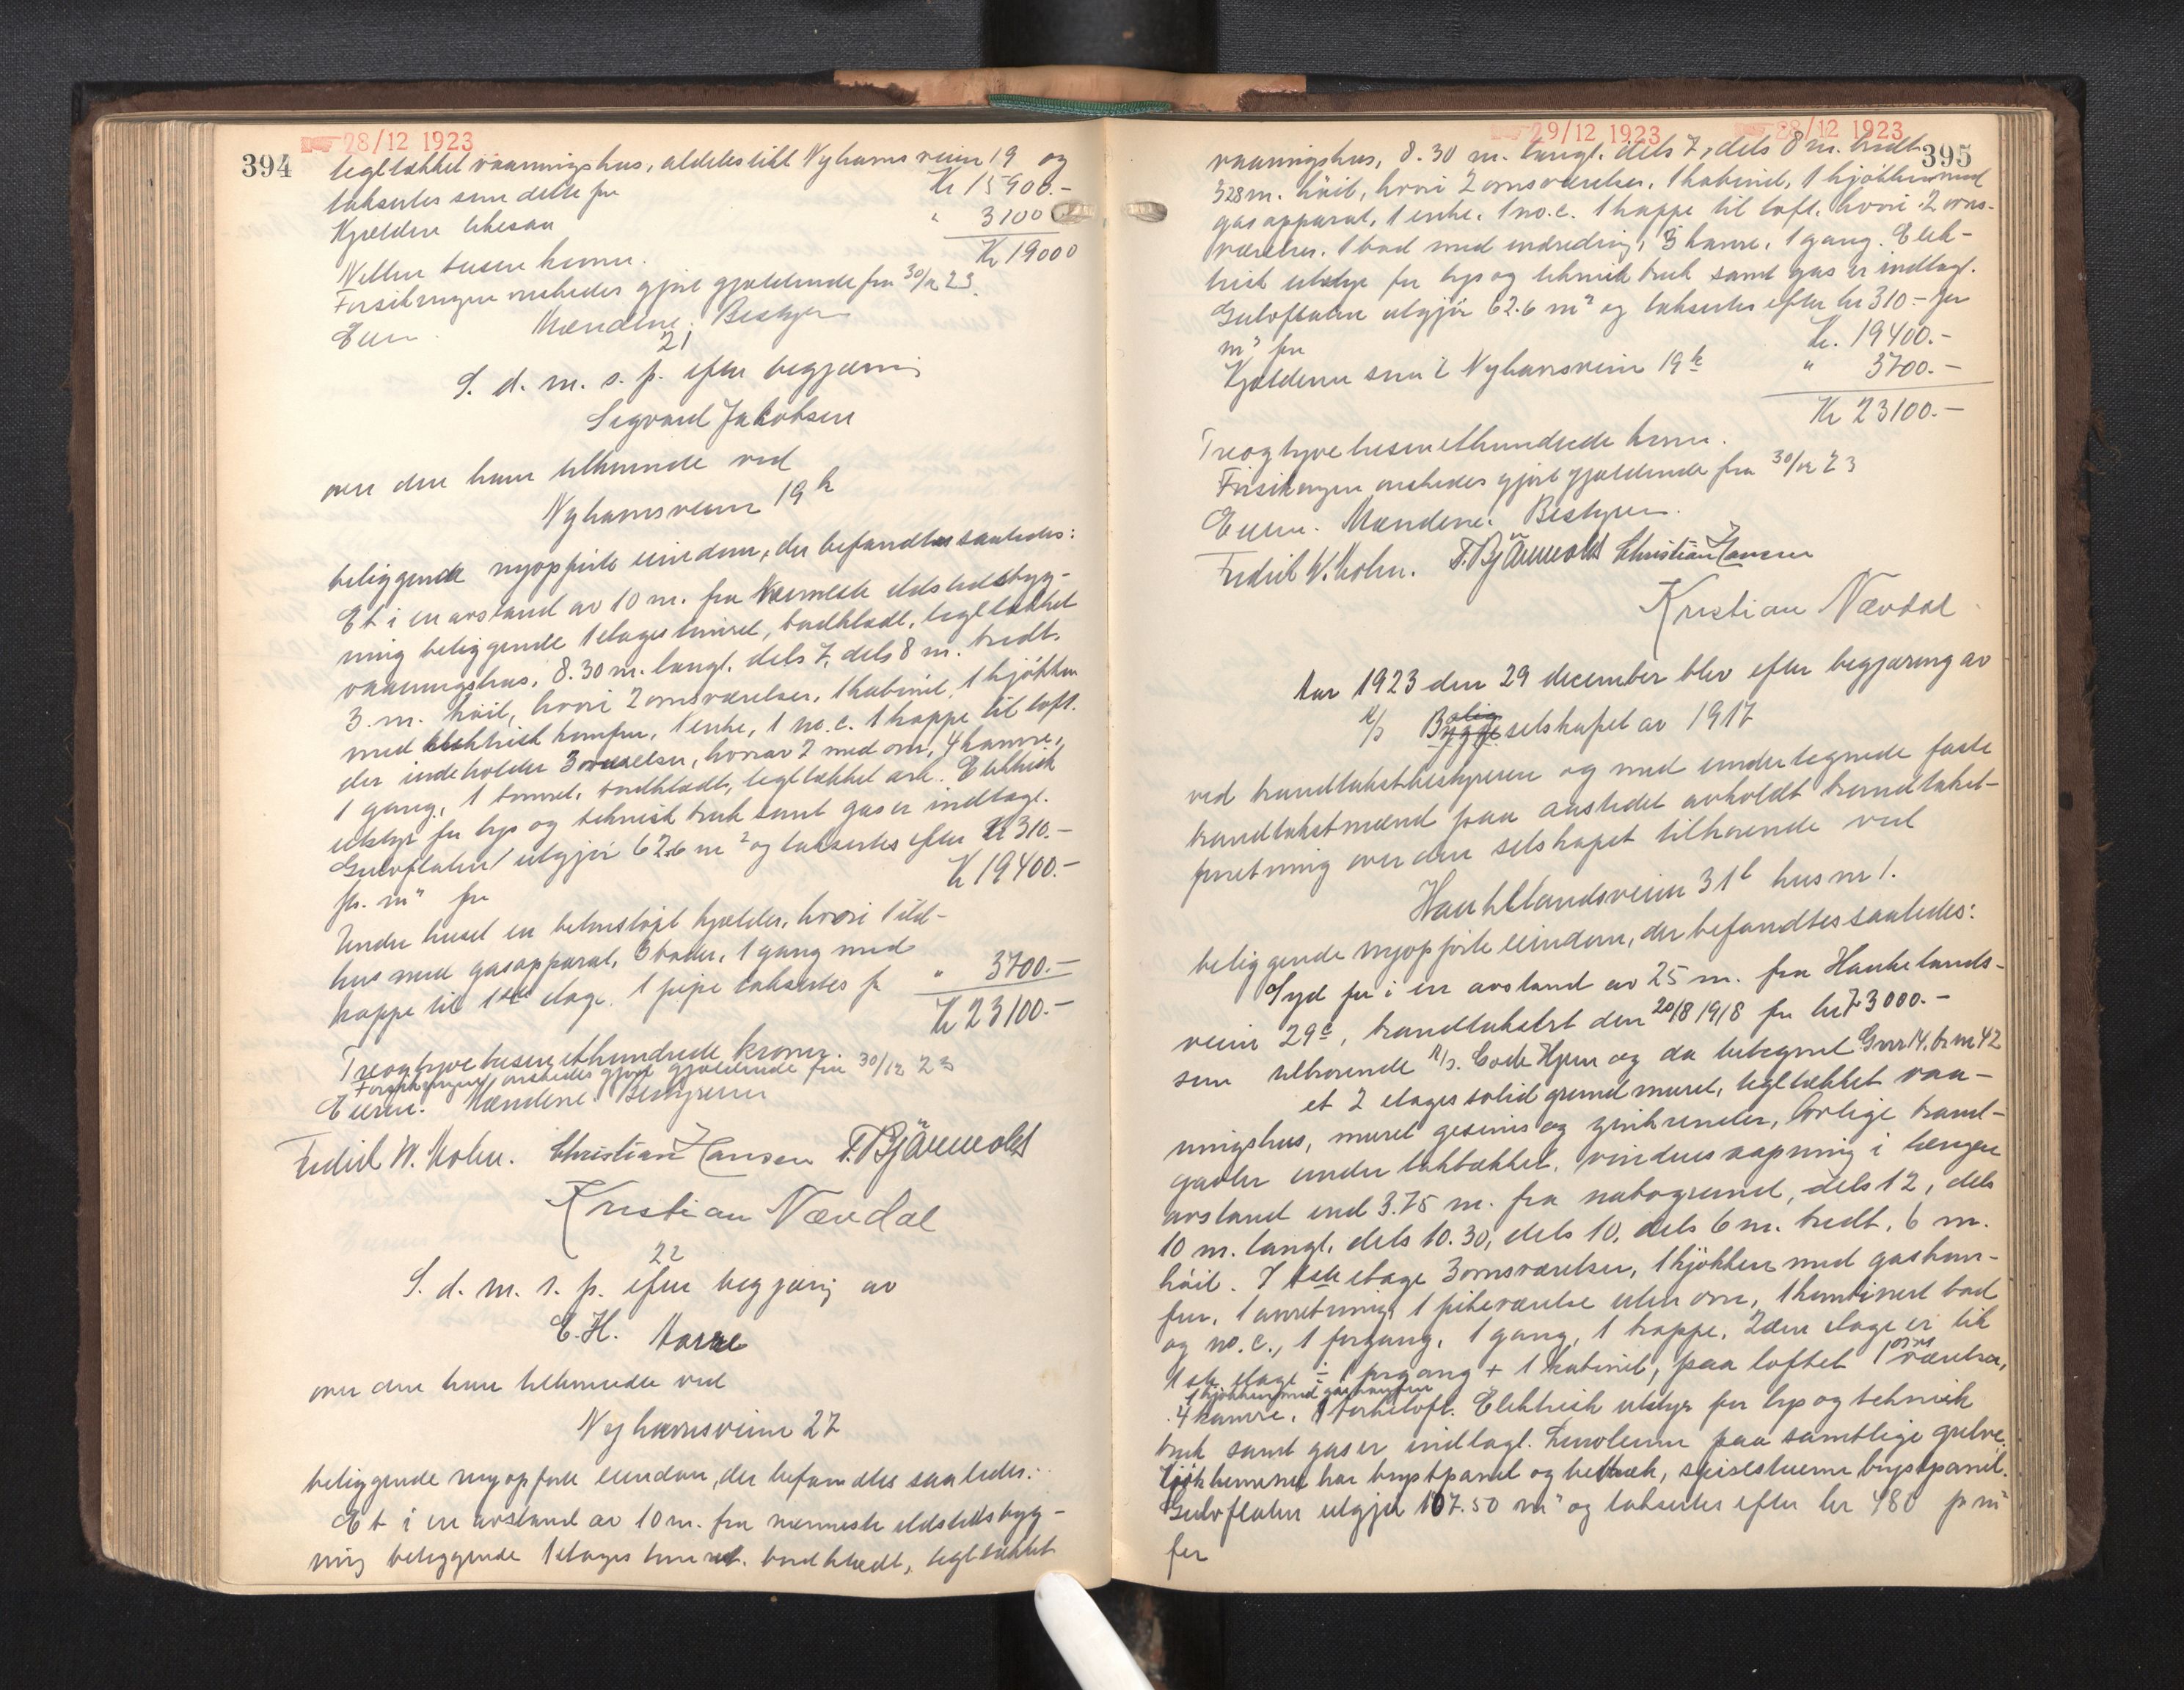 28/12 1923
394
tegltækket vaaningshus, aldeles likt Nyhavnsveien 19 og
taksertes som dette for Kr 15900.-
Kjælderen likesaa " 3100
Kr 19000
Nitten tusen kroner.
Forsikringen ønskedes gjort gjældende fra 30/12 23.
Eieren. Mændene. Bestyreren
21
S. d. m. s. p. efter begjæring
Sigvard Jakobsen
over den ham tilhørende ved
Nyhavnsveien 19 k
beliggende nyopførte eiendom, der befandtes saaledes:
Et i en avstand av 10 m. fra nærmeste ildstedsbyg-
ning beliggende 1 etages tømret, bordklædt, tegltækket
vaaningshus, 8.30 m. langt, dels 7, dels 8 m. bredt,
3 m. høit, hvori 2 ovnsværelser, 1 kabinet, 1 kjøkken
med elektrisk komfur, 1 entre, 1 w.c. 1 trappe til loft.
der indeholder 3 værelser, hvorav 2 med ovn, 4 kamre,
1 gang, 1 tømret, bordklædt, tegltækket ark. Elektrisk
utstyr for lys og teknisk bruk samt gas er indlagt.
Gulvflaten utgjør 62.6 m² og taksertes efter Kr 310.-
pr. m² for Kr 19400.-
Under huset en betonstøpt kjælder, hvori 1 ild-
hus med gasapparat, 3 boder, 1 gang med
trappe til 1ste etage. 1 pipe taksertes for " 3700.-
Kr 23100.-
Treogtyvetusenethundrede kroner.
Forsikringen ønskedes gjort gjældende fra 30/12 23
Eieren. Mændene. Bestyreren
Fredrik W. Holm. Christian Hansen F. Bjånnvold
Kristian Nævdal
22
S. d. m. s. p. efter begjæring av
E. H. Aarre
over den ham tilhørende ved
Nyhavnsveien 27
beliggende nyopførte eiendom, der befandtes saaledes:
Et i en avstand av 10 m. fra nærmeste ildstedsbyg-
ning beliggende 1 etages tømret, bordklædt, tegltækket
29/12 1923 28/12 1923
395
vaaningshus, 8.30 m. langt. dels 7, dels 8 m. bredt
3.28 m. høit, hvori 2 ovnsværelser, 1 kabinet, 1 kjøkken med
gasapparat, 1 entre, 1 w.c. 1 trappe til loft, hvori 2 ovns-
værelser. 1 bad med indredning, 3 kamre, 1 gang. Elek-
trisk utstyr for lys og teknisk bruk samt gas er indlagt.
Gulvflaten utgjør 62.6 m² og taksertes efter kr 310.- per
m² for Kr. 19400.-
Kjælderen som i Nyhavnsveien 19 k " 3700.-
Kr 23100.-
Treogtyvetusenethundrede kroner.
Forsikringen ønskedes gjort gjældende fra 30/12 23
Eieren. Mændene. Bestyreren.
Fredrik W. Holm. F. Bjånnvold Christian Hansen
Kristian Nævdal
Aar 1923 den 29 december blev efter begjæring av
A/S Bygge olig selskapet av 1917
ved brandtakstbestyreren og med undertegnede faste
brandtakstmænd paa aastedet avholdt brandtakst-
forretning over den selskapet tilhørende ved
Haukelandsveien 31 b hus nr 1.
beliggende nyopførte eiendom, der befandtes saaledes:
Syd for i en avstand av 25 m. fra Haukelands-
veien 29 c, brandtakstert den 20/8 1918 for kr 73000.-
som tilhørende A/S. Gode Hjem og da betegnet Gnr 14. br nr 42
et 2 etages solid grundmuret, tegltækket vaa-
ningshus, muret gesims og zinkrender, lovlige brand-
gavler under taktækket, vinduesaapning i længere
avstand end 3.75 m. fra nabogrund, dels 12, dels
10 m. langt, dels 10.30, dels 10, dels 6 m. bredt, 6 m.
høit. I 1ste etage 3 ovnsværelser, 1 kjøkken med gaskom-
fur, 1 anretning, 1 pikeværelse uten ovn, 1 kombinert bad
og w.c., 1 forgang, 1 gang, 1 trappe. 2den etage er lik
1ste etage ÷ 1 forgang + 1 kabinet, paa loftet 1 ovns værelse,
1 kjøkken med gaskomfur
4 kamre, 1 tørkeloft. Elektrisk utstyr for lys og teknisk
bruk samt gas er indlagt. Linoleum paa samtlige gulve.
Kjøkkenerne har brystpanel og betræk, spisestuerne brystpanel.
Gulvflaten utgjør 107.50 m² og taksertes efter kr 480 pr m²
for